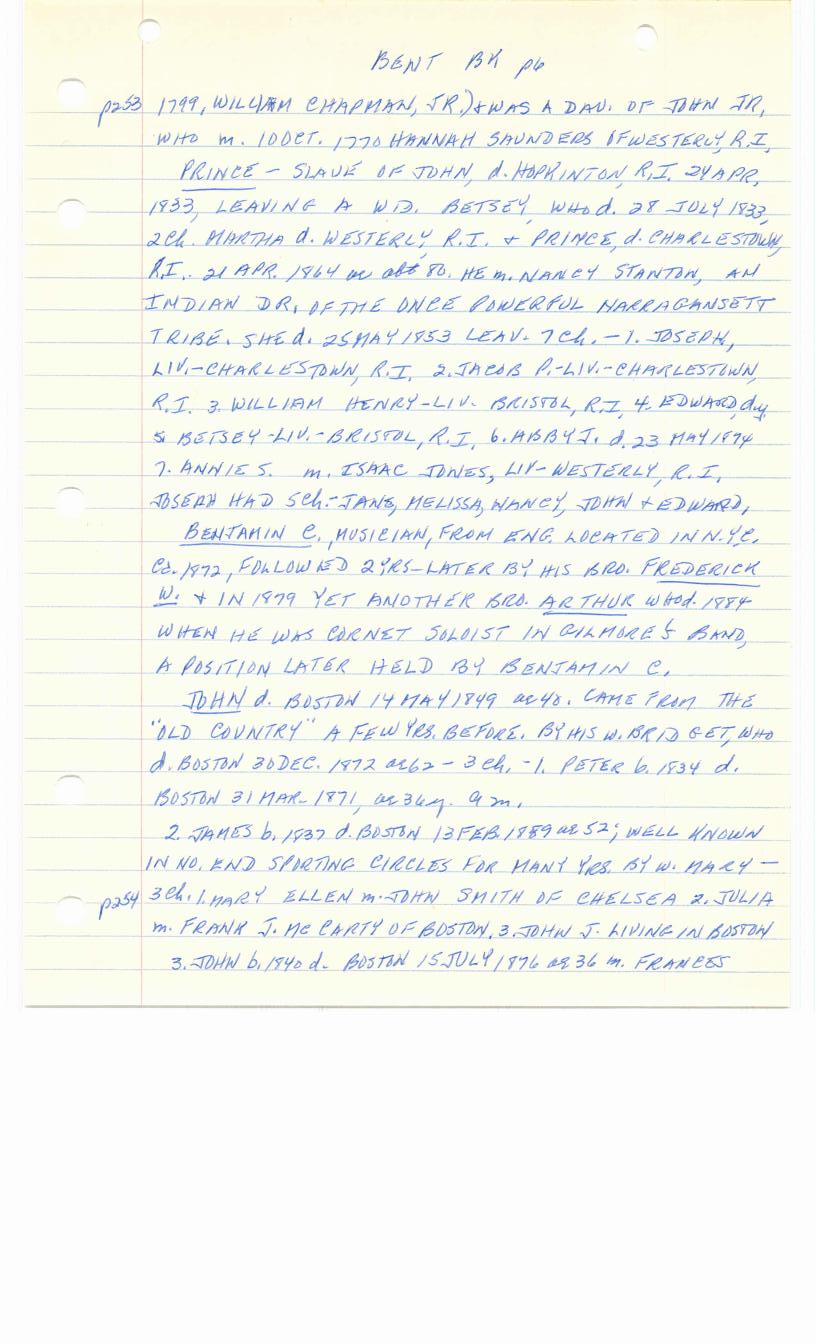 BENT BK p6
p253 1799, WILLIAM CHAPMAN, JR.) & WAS A DAU. OF JOHN JR,
WHO m. 10 OCT. 1770 HANNAH SAUNDERS OF WESTERLY, R.I,
PRINCE – SLAVE OF JOHN, d. HOPKINTON, R.I. 24 APR,
1833, LEAVING A WD. BETSEY, WHO d. 28 JULY 1833,
2 Ch. MARTHA d. WESTERLY, R.I. & PRINCE, d. CHARLESTOWN,
R.I.. 21 APR. 1864 ae abt 80. HE m. NANCY STANTON, AN
INDIAN DR, OF THE ONCE POWERFUL NARRAGANSETT
TRIBE. SHE d. 25 MAY 1853 LEAV. 7 Ch. – 1. JOSEPH,
LIV.–CHARLESTOWN, R.I, 2. JACOB P.–LIV.–CHARLESTOWN,
R.I. 3. WILLIAM HENRY–LIV– BRISTOL, R.I, 4. EDWARD, d.y.
5. BETSEY–LIV.–BRISTOL, R.I, 6. ABBY J. d. 23 MAY 1874
7. ANNIE S. m. ISAAC JONES, LIV– WESTERLY, R.I,
JOSEPH HAD 5 ch.– JANE, MELISSA, NANCY, JOHN & EDWARD,
BENJAMIN C., MUSICIAN, FROM ENG. LOCATED IN N.Y.C.
Ca. 1872, FOLLOWED 2 YRS–LATER BY HIS BRO. FREDERICK
W. & IN 1879 YET ANOTHER BRO. ARTHUR WHO d. 1884
WHEN HE WAS CORNET SOLOIST IN GILMORE'S BAND,
A POSITION LATER HELD BY BENJAMIN C.
JOHN d. BOSTON 14 MAY 1849 ae 40. CAME FROM THE
"OLD COUNTRY" A FEW YRS. BEFORE. BY HIS W. BRIDGET, WHO
d. BOSTON 30 DEC. 1872 ae 62 – 3 ch. – 1. PETER b. 1834 d.
BOSTON 31 MAR– 1871, ae 36 y. 9 m.
2. JAMES b. 1837 d. BOSTON 13 FEB. 1889 ae 52; WELL KNOWN
IN NO. END SPORTING CIRCLES FOR MANY YRS. BY W. MARY –
p254 3 Ch. 1. MARY ELLEN m. JOHN SMITH OF CHELSEA 2. JULIA
m. FRANK J. MC CARTY OF BOSTON. 3. JOHN J. LIVING IN BOSTON
3. JOHN b. 1840 d. BOSTON 15 JULY 1876 ae 36 m. FRANCES